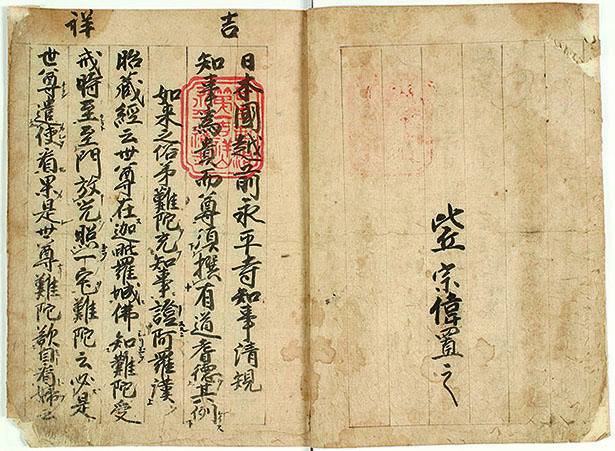 比丘宗偉置之
吉祥
日本國越前永平寺知事清規
知事為貴而尊須撰有道耆德其例
如來之俗弟難陀充知事證阿羅漢
胎藏經云世尊在迦毗羅城佛知難陀受
戒時至至門放光照一宅難陀云必是
世尊遣使看果是世尊難陀欲自看婦云